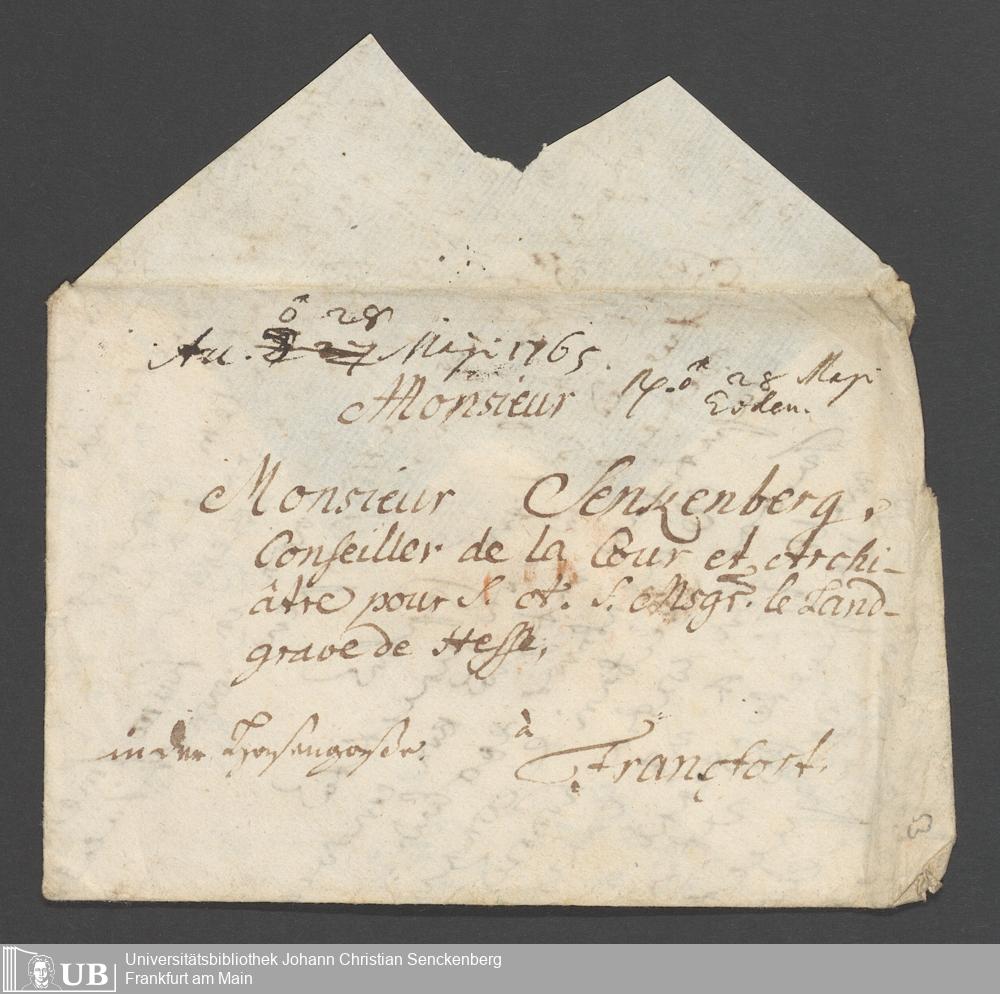 28
Acc. Maji 1765.
Monsieur
28 Maji
Eodem.
Monsieur Senkenberg,
Conseiller de la Cour et Archi-
âtre pour S. A. S. Msgr. le Land-
grave de Hesse,
in der Hasengasse.
à
Francfort.
UB Universitätsbibliothek Johann Christian Senckenberg
Frankfurt am Main